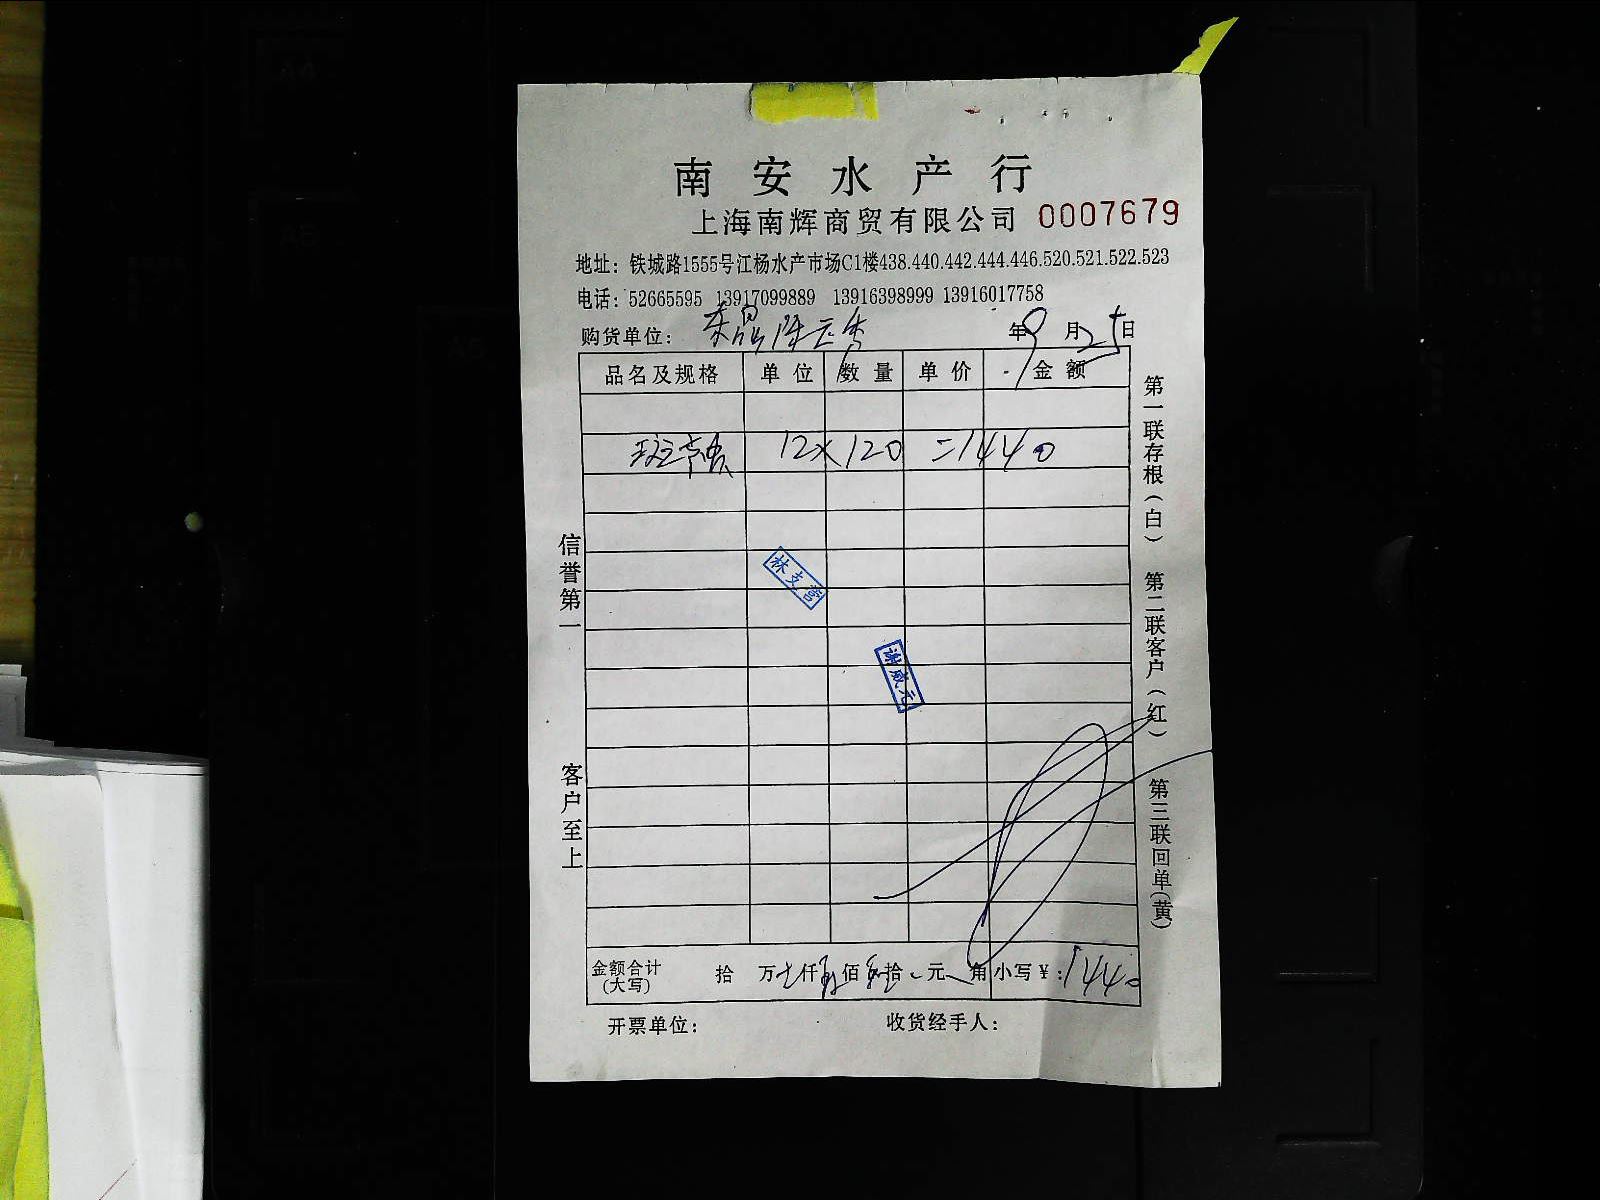 南安水产行
上海南辉商贸有限公司 0007679
地址：铁城路1555号江杨水产市场C1楼438.440.442.444.446.520.521.522.523
电话：52665595 13917099889 13916398999 13916017758
购货单位： 年9月25日
品名及规格 单位 数量 单价 金额
12×120 =1440
林支营
谢威元
信誉第一
客户至上
第一联存根（白） 第二联客户（红） 第三联回单（黄）
金额合计 拾 万 仟 佰 拾 元 角 小写¥：1440
(大写)
开票单位： 收货经手人：